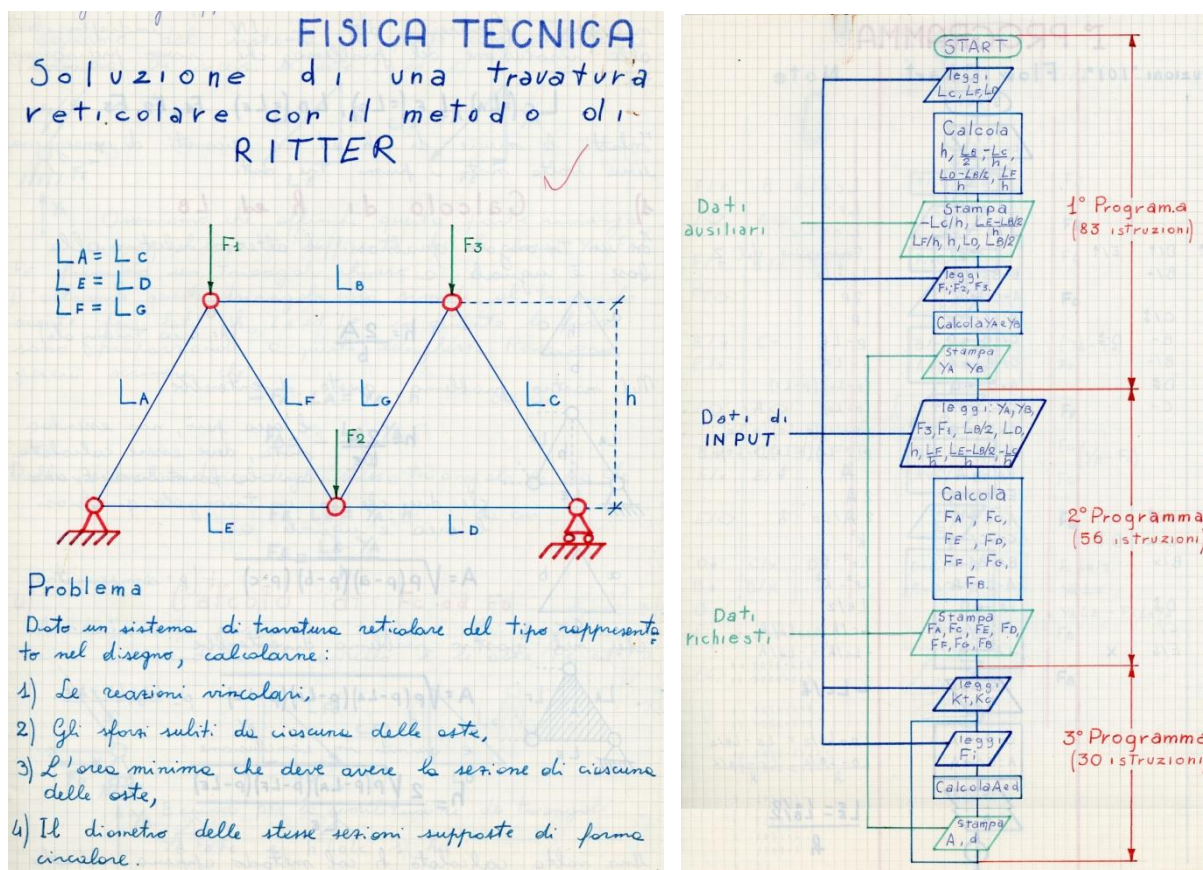 FISICA TECNICA
Soluzione di una travatura
reticolare con il metodo di
RITTER
LA = LC
LE = LD
LF = LG
F1
F3
LB
LA
LF
LG
LC
h
F2
LE
LD
Problema
Dato un sistema di travatura reticolare del tipo rappresenta
to nel disegno, calcolarne:
1) Le reazioni vincolari,
2) Gli sforzi subiti da ciascuna delle aste,
3) L'area minima che deve avere la sezione di ciascuna
delle aste,
4) Il diametro delle stesse sezioni supposte di forma
circolare.
START
leggi
LC, LF, LD
Calcola
h, LB/2, -LC/h,
LD-LB/2/h, LF/h
Dati
ausiliari
Stampa
-LC/h, LE-LB/2/h
LF/h, h, LD, LB/2
leggi
F1, F2, F3.
Calcola YA e YB
Stampa
YA YB
1° Programma
(83 istruzioni)
Dati di
INPUT
leggi: YA, YB,
F3, F1, LB/2, LD,
h, LF/h, LE-LB/2/h, -LC/h
Calcola
FA, FC,
FE, FD,
FF, FG,
FB.
Dati
richiesti
Stampa
FA, FC, FE, FD,
FF, FG, FB
2° Programma
(56 istruzioni)
leggi
Kt, Kc
leggi
Fi
Calcola A e d
Stampa
A, d
3° Programma
(30 istruzioni)